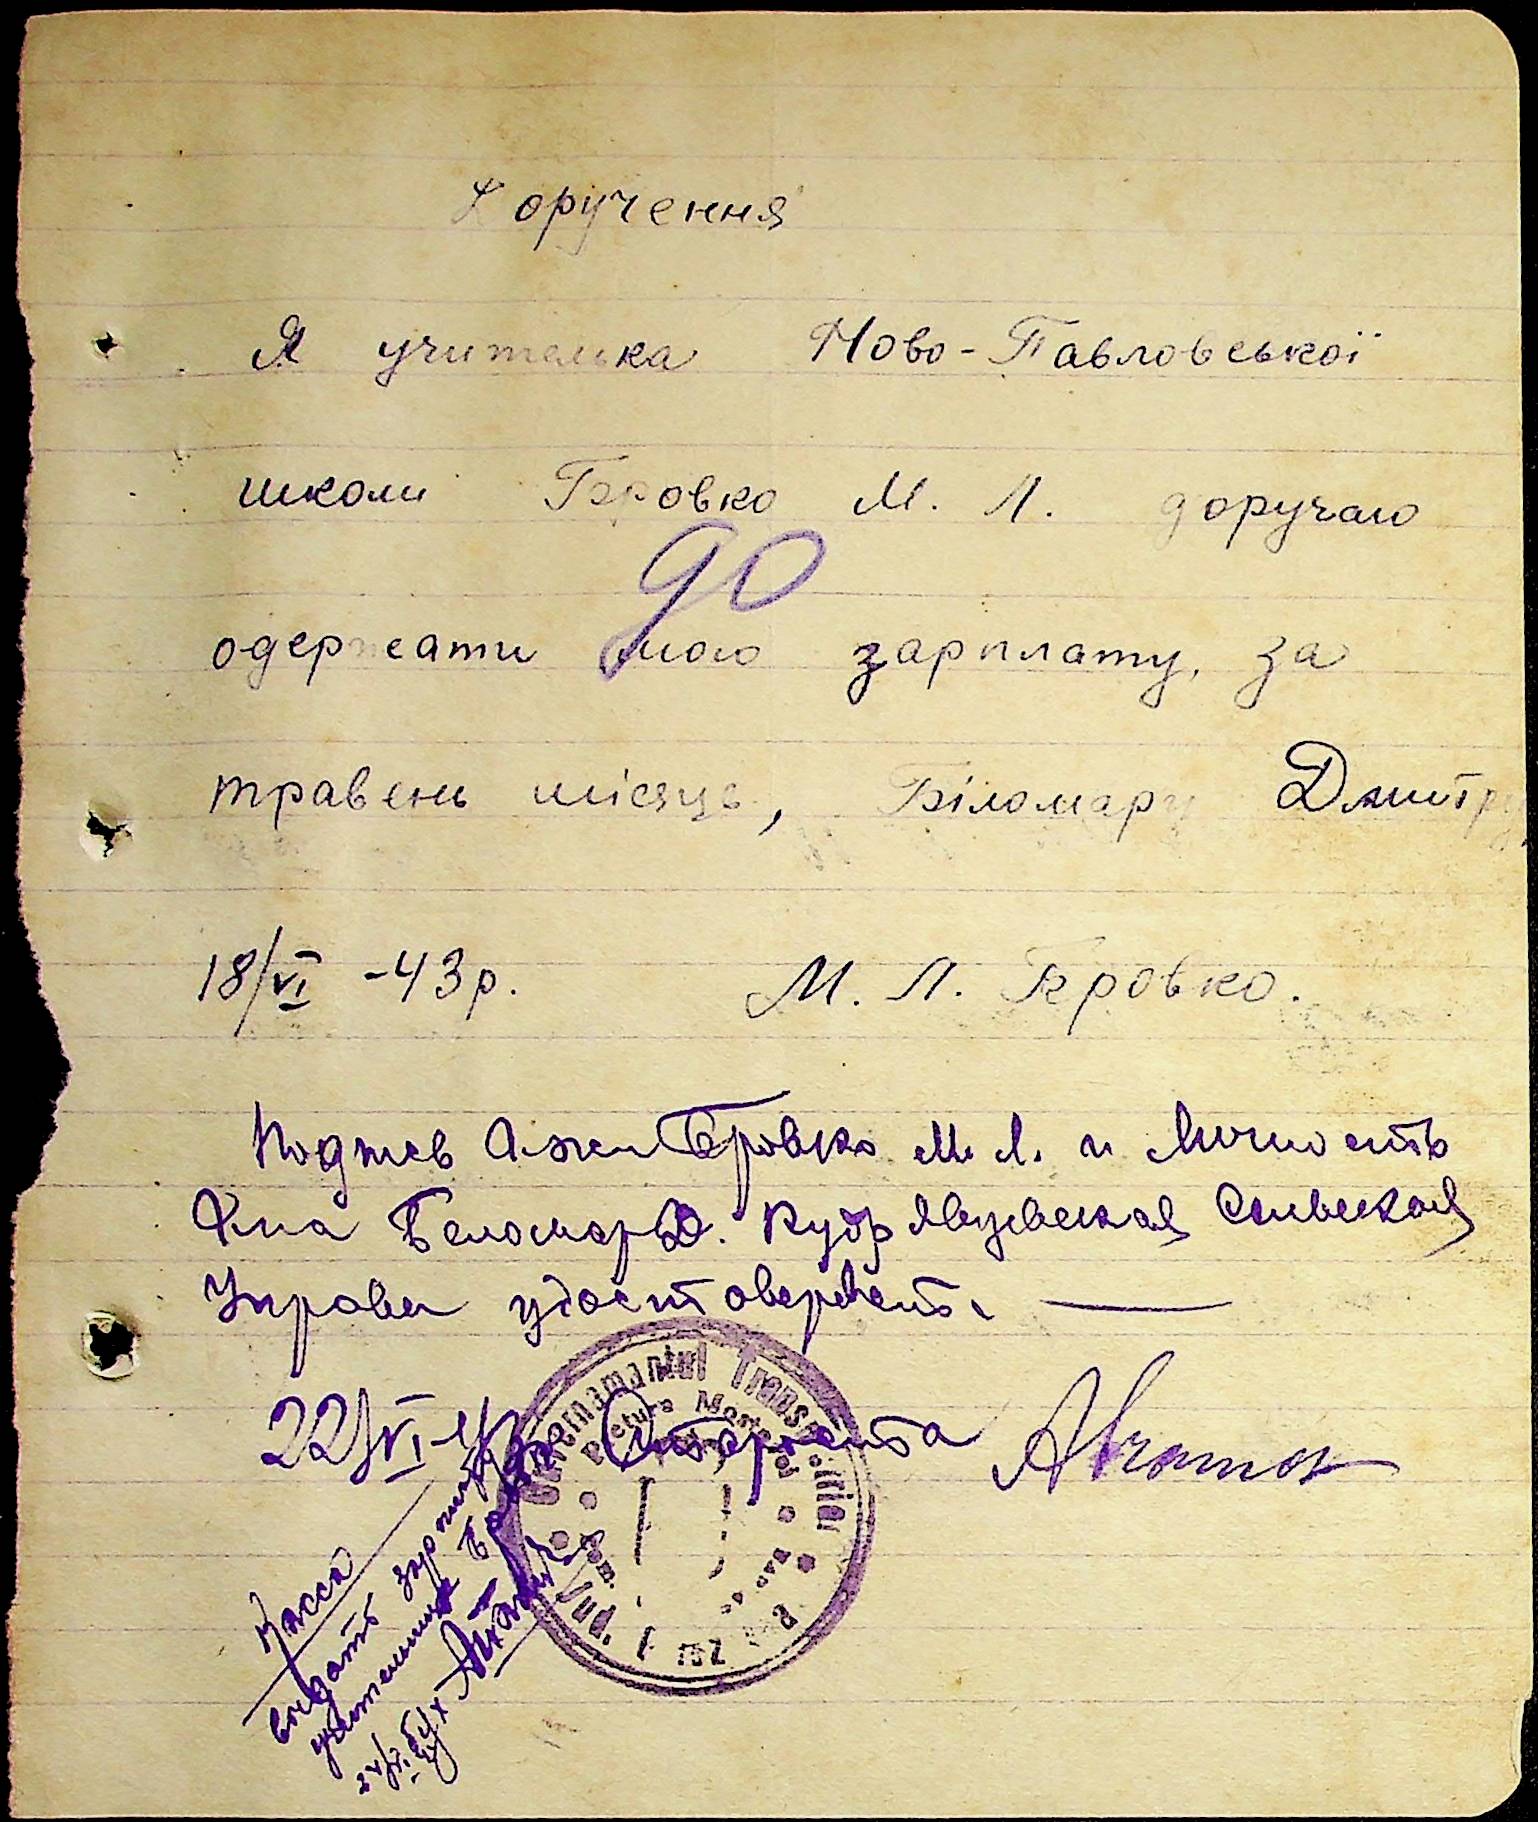 Доручення
Я учителька Ново-Павловської
школи Бровко М. Л. доручаю
90
одержати мою зарплату, за
травень місяць, Біломару Дмитру.
18/VI -43р. М. Л. Бровко.
Бровко М. Л. и личность
Беломар Д. Сельская
Управа удостоверяет. —
22/VI-43 Староста
Guvernamantul Transnistriei
Pretura
Jud.
Касса
выдать зарплату
учительници
24/VI Бух